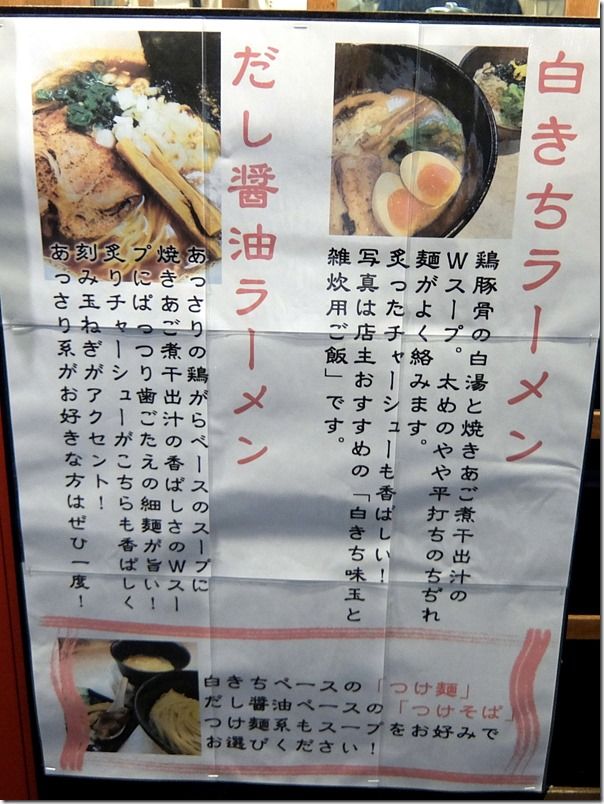 白きちラーメン
鶏豚骨の白湯と焼きあご煮干出汁の
Wスープ。太めのやや平打ちのちぢれ
麺がよく絡みます。
炙ったチャーシューも香ばしい！
写真は店主おすすめの「白きち味玉と
雑炊用ご飯」です。
だし醤油ラーメン
あっさりの鶏がらベースのスープに
焼きあご煮干出汁の香ばしさのWスー
プにぱっつり歯ごたえの細麺が旨い！
炙りチャーシューがこちらも香ばしく
刻み玉ねぎがアクセント！
あっさり系がお好きな方はぜひ一度！
白きちベースの「つけ麺」
だし醤油ベースの「つけそば」
つけ麺系もスープをお好みで
お選びください！